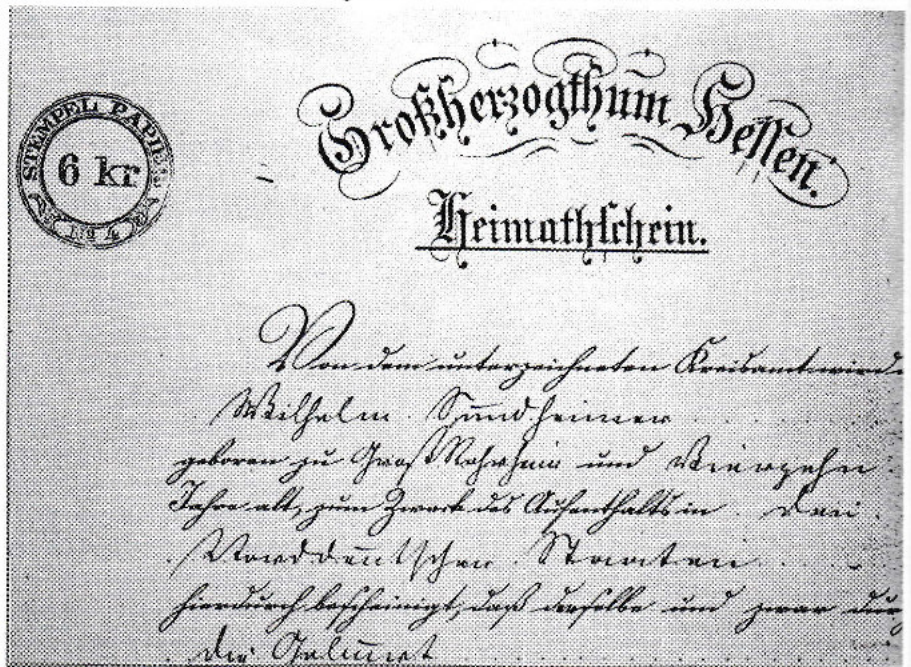 STEMPEL PAPIER
6 kr
No 4
Großherzogthum Hessen.
Heimathschein.
Von dem unterzeichneten Kreisamt wird
Wilhelm Sundheimer
geboren zu Groß Rohrheim und Vierzehn
Jahre alt, zum Zweck des Aufenthalts in den
Norddeutschen Staaten
hierdurch bescheinigt, daß derselbe und zwar dur
die Geburt